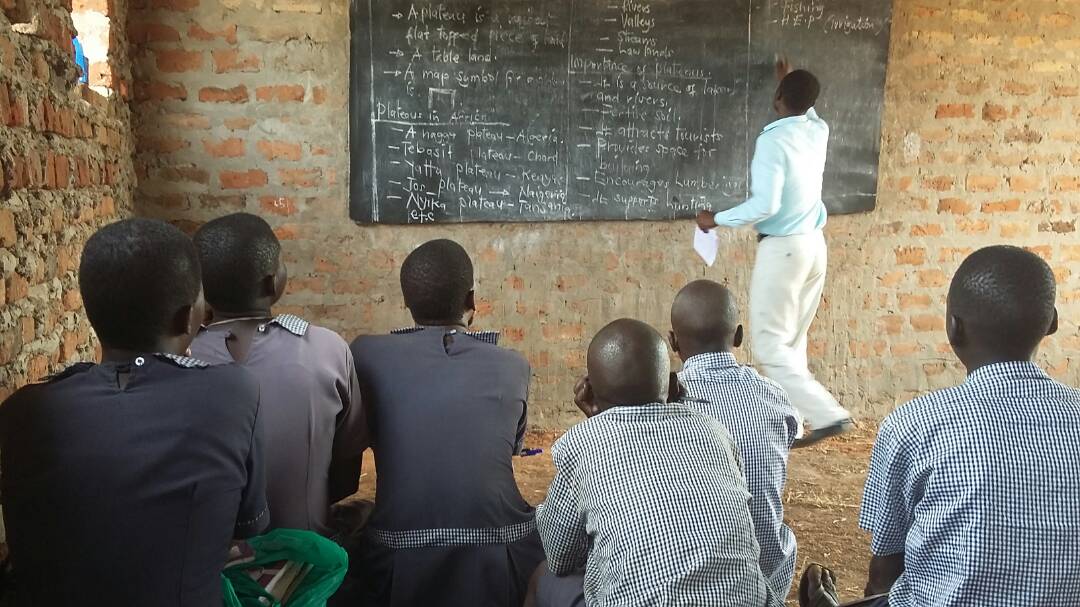 → A plateau is a raised
flat topped piece of land
→ A table land.
→ A map symbol for a plateau
is
Plateaus in Africa
- A haggar plateau - Algeria.
- Tebasit plateau - Chard
- Yatta plateau - Kenya
- Jos plateau → Naigeria
- Nyika plateau - Tanzania.
etc
- Rivers
- Valleys
- Streams
- Low lands
Importance of plateaus.
- It is a source of lakes
and rivers.
- Fertile soil,
- It attracts tourists
- Provides space for
building
- Encourages lumbering
- It supports hunting
Fishing
H.E.P (Irrigation)